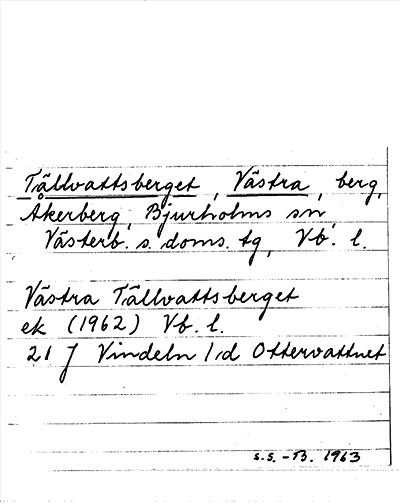 Tällvattsberget, Västra, berg,
Åkerberg, Bjurholms sn,
Västerb. s. doms. tg, Vb. l.
Västra Tällvattsberget
ek (1962) Vb. l.
21 J Vindeln 1d Ottervattnet
S.S. - B. 1963